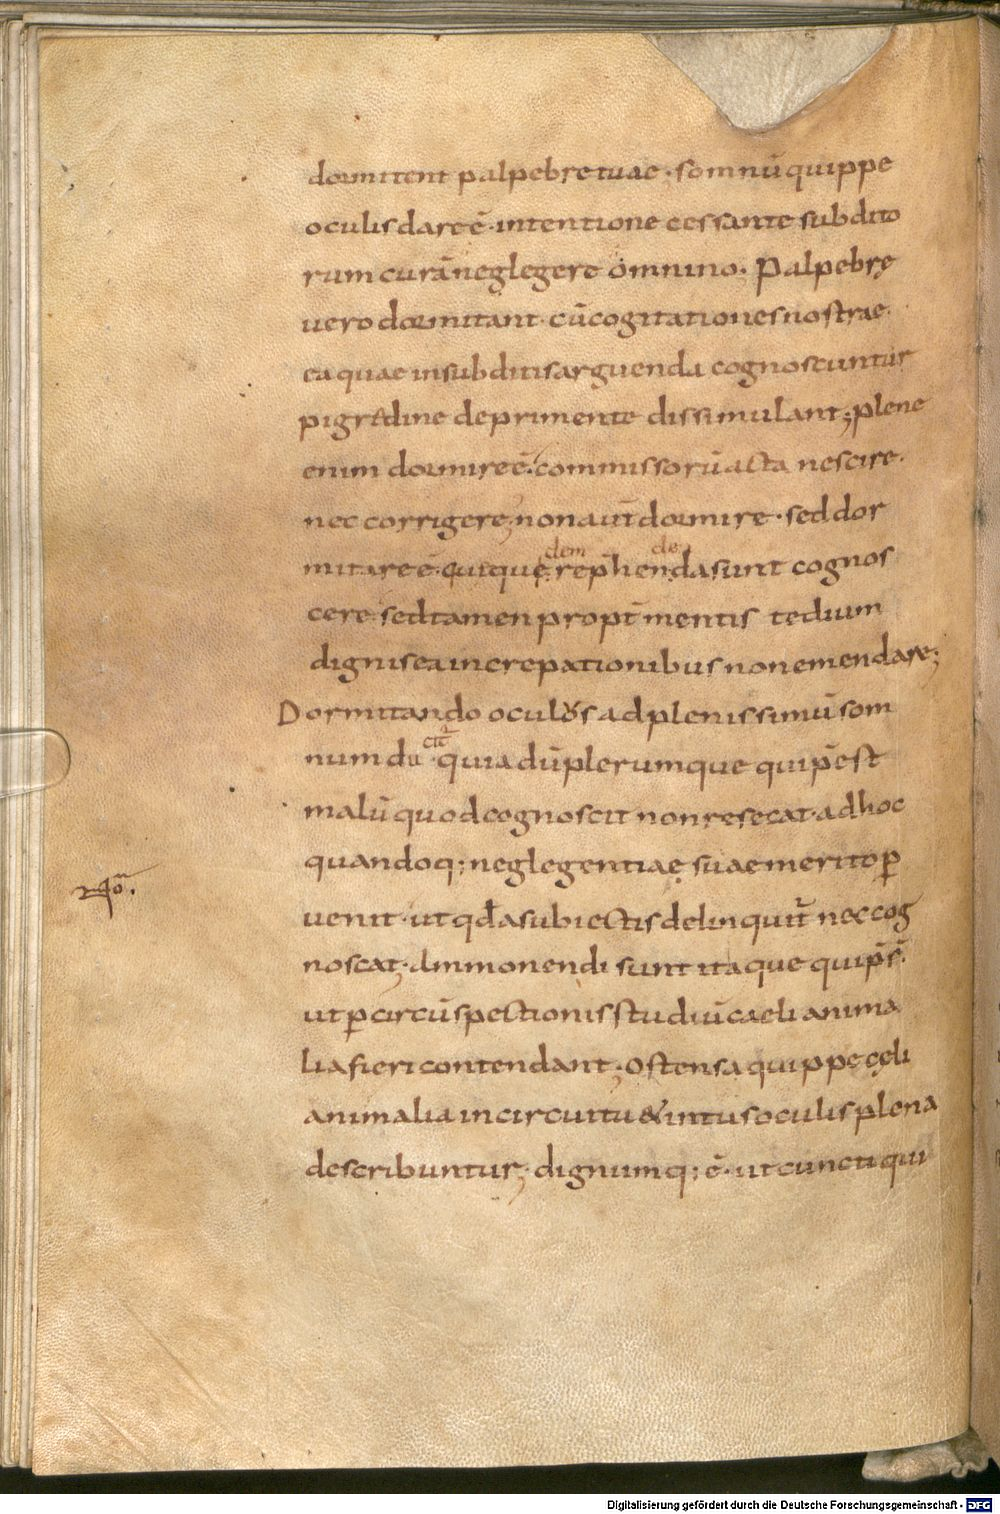 dormitent palpebre tuae · somnū quippe
oculis dare ē · intentione cessante subdito
rum curā neglegere omnino. Palpebrę
vero dormitant · cū cogitationes nostrae
ea quae in subditis arguenda cognoscuntur
pigredine deprimente dissimulant; plene
enim dormire ē · commissorū acta nescire ·
nec corrigere; non aut̄ dormire · sed dor
dem de
mitare ē · quęque rep̄hendasunt cognos
cere · sed tamen propt̄ mentis tedium
dignis ea increpationibus non emendare;
Dormitando oculos ad plenissimū som
num du cit̄ · quia dū plerumque qui p̄est
malū quod cognoscit non resecat · ad hoc
quandoq; neglegentiae suae merito ꝑ
venit · ut qđ a subiectis delinquit̄ nec cog
noscat; Ammonendi sunt itaque qui p̄s̄ ·
ut ꝑ circūspectionis studiū caeli anima
lia fieri contendant; Ostensa quippe cęli
animalia in circuitu & intus oculis plena
describuntur; dignumq; ē · ut cuncti qui
Digitalisierung gefördert durch die Deutsche Forschungsgemeinschaft - DFG